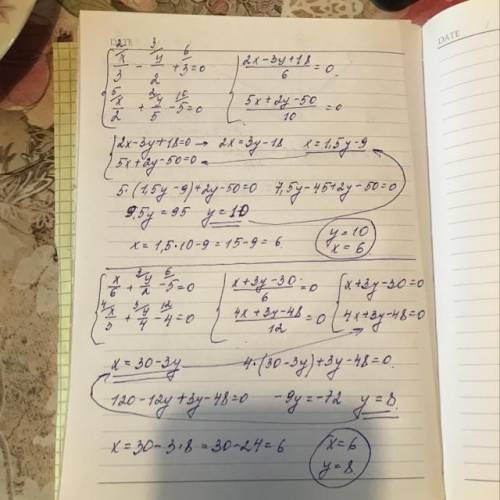 DATE
DATE
{ ²x/3 - ³y/2 + ⁶3 = 0
{ ⁵x/2 + ²y/5 - ¹⁰5 = 0
{ (2x-3y+18)/6 = 0
{ (5x+2y-50)/10 = 0
{ 2x-3y+18=0 → 2x=3y-18 x=1,5y-9
{ 5x+2y-50=0
5·(1,5y-9)+2y-50=0 7,5y-45+2y-50=0
9,5y=95 y=10
x=1,5·10-9=15-9=6
y=10
x=6
{ x/6 + ³y/2 - ⁶5 = 0
{ ⁴x/3 + ³y/4 - ¹²4 = 0
{ (x+3y-30)/6 = 0
{ (4x+3y-48)/12 = 0
{ x+3y-30=0
{ 4x+3y-48=0
x=30-3y 4·(30-3y)+3y-48=0
120-12y+3y-48=0 -9y=-72 y=8
x=30-3·8=30-24=6
x=6
y=8